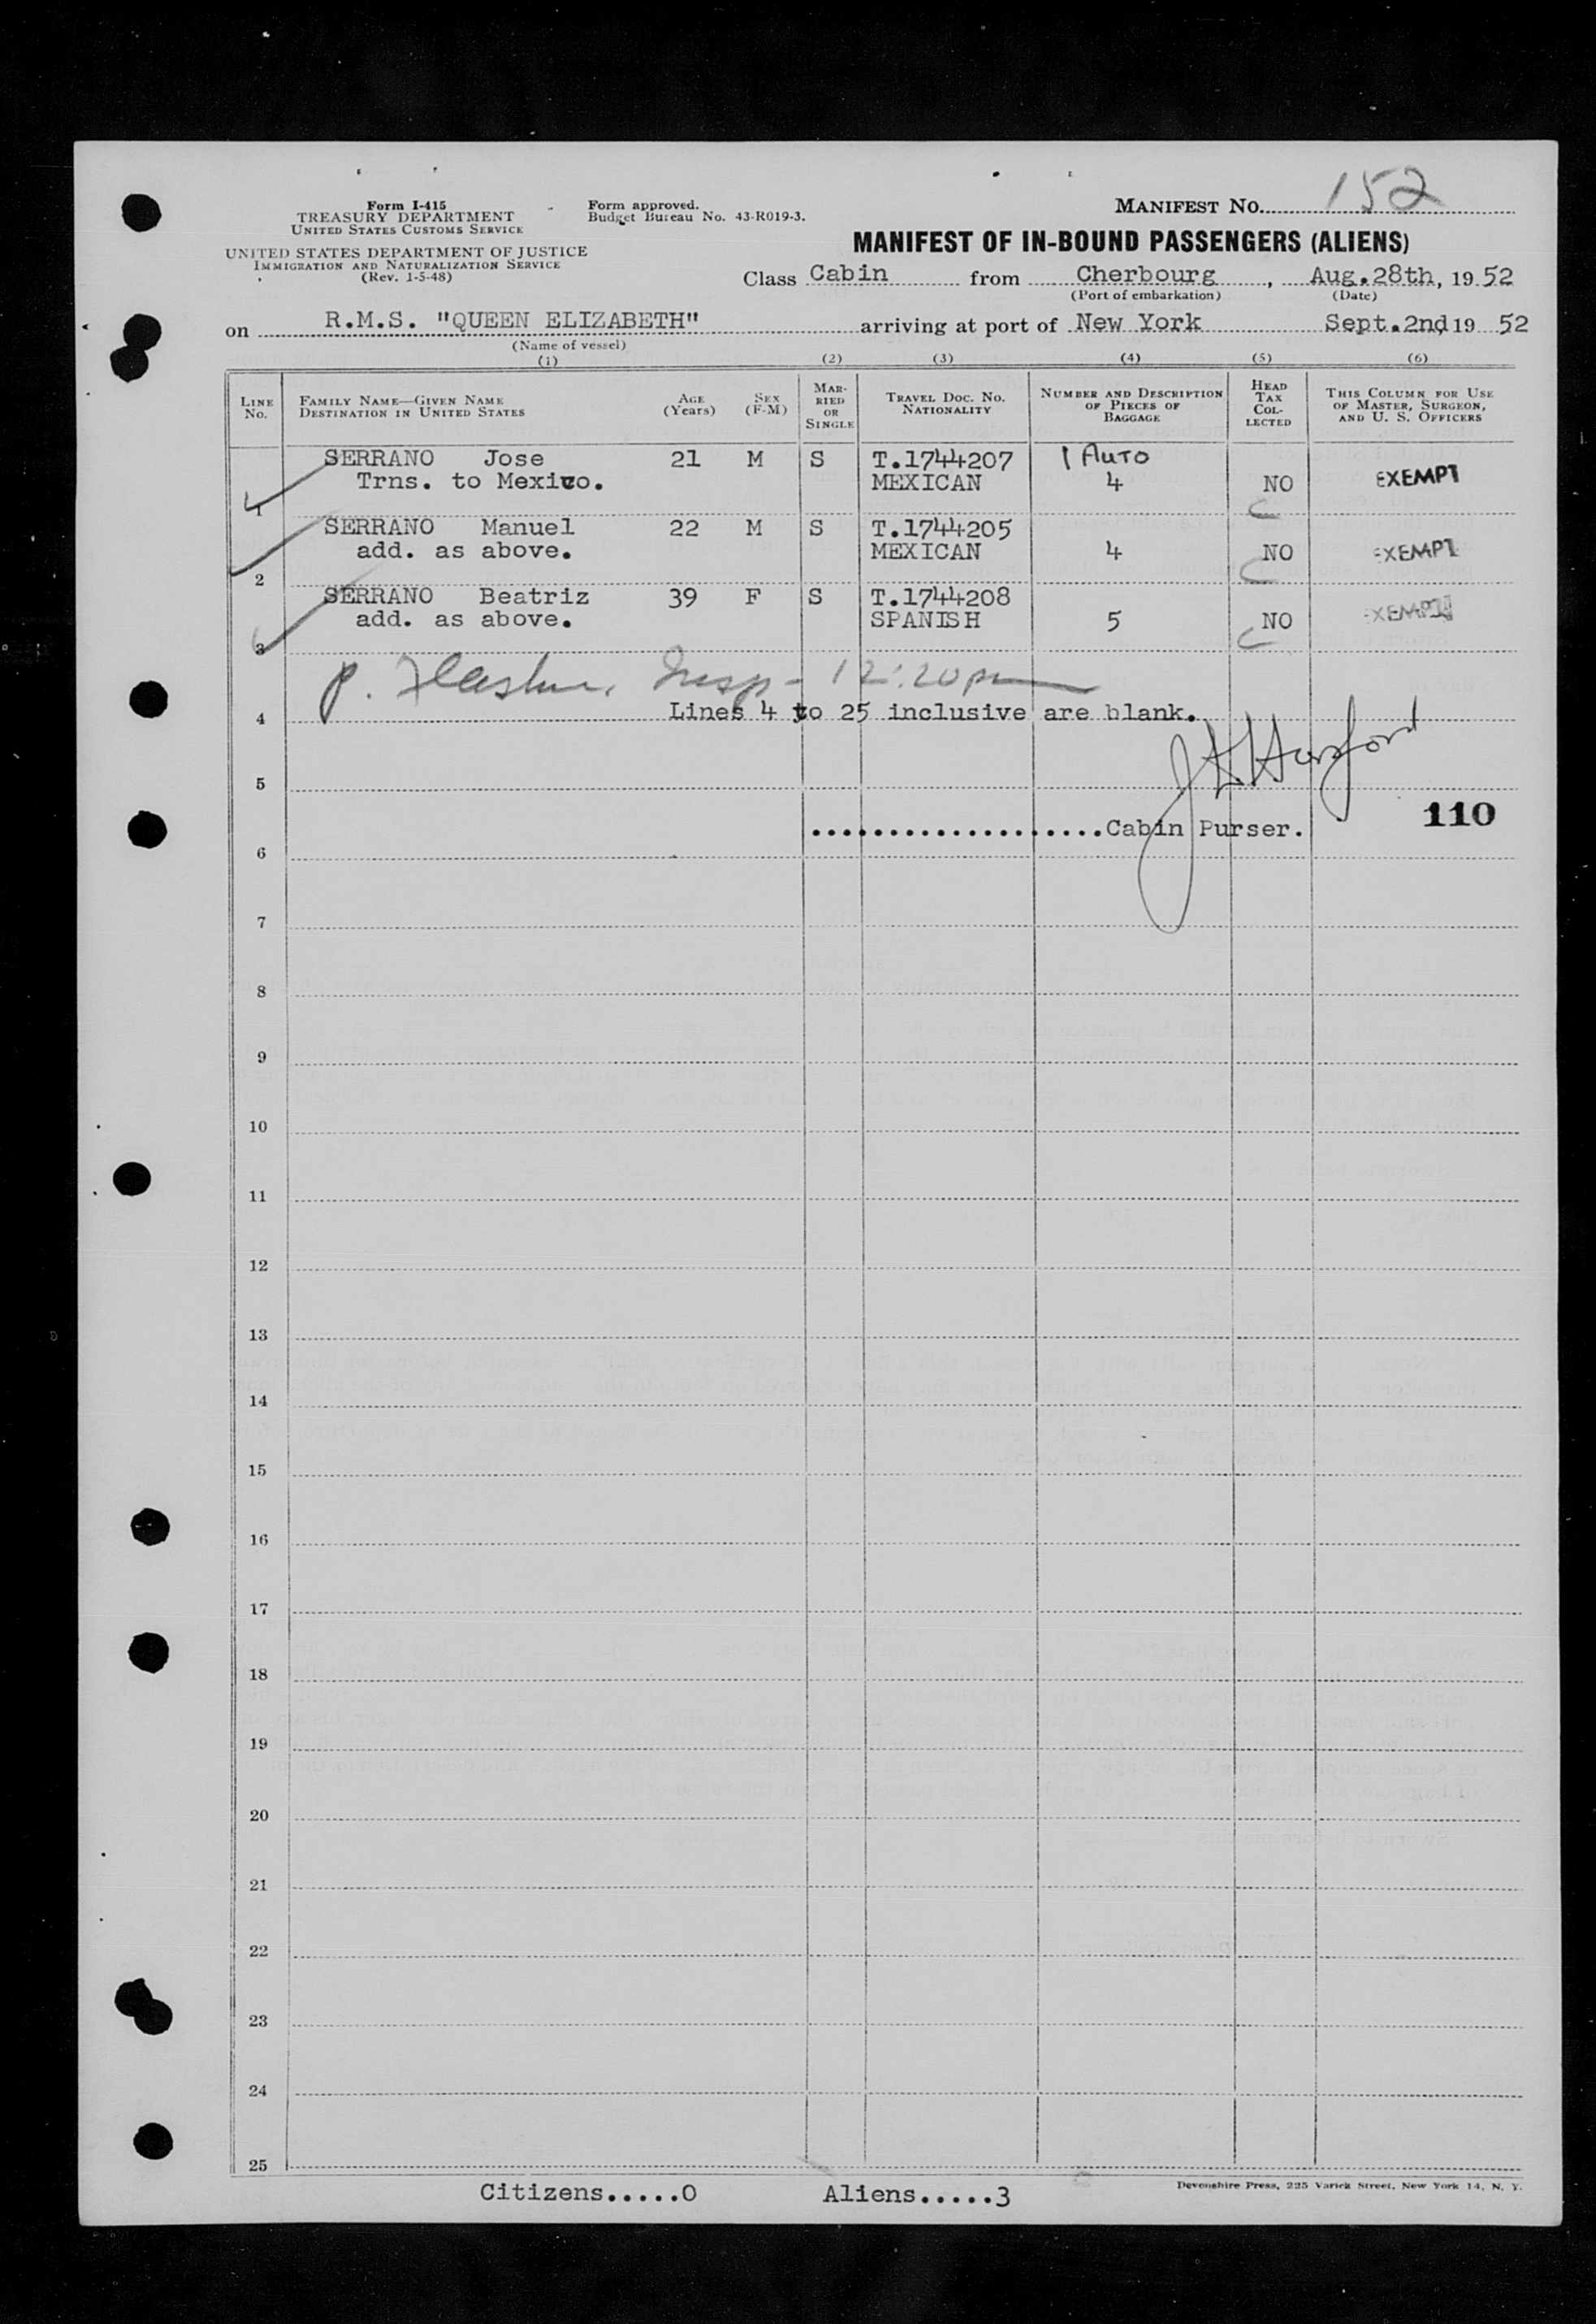 Form I-415
TREASURY DEPARTMENT
UNITED STATES CUSTOMS SERVICE
UNITED STATES DEPARTMENT OF JUSTICE
IMMIGRATION AND NATURALIZATION SERVICE
(Rev. 1-5-48)
Form approved.
Budget Bureau No. 43-R019-3.
MANIFEST NO. 152
MANIFEST OF IN-BOUND PASSENGERS (ALIENS)
Class Cabin from Cherbourg, Aug.28th, 1952
(Port of embarkation) (Date)
on R.M.S. "QUEEN ELIZABETH" arriving at port of New York Sept.2nd 19 52
(Name of vessel)
(1) (2) (3) (4) (5) (6)
LINE NO. FAMILY NAME—GIVEN NAME DESTINATION IN UNITED STATES AGE (Years) SEX (F-M) MARRIED OR SINGLE TRAVEL DOC. NO. NATIONALITY NUMBER AND DESCRIPTION OF PIECES OF BAGGAGE HEAD TAX COLLECTED THIS COLUMN FOR USE OF MASTER, SURGEON, AND U. S. OFFICERS
SERRANO Jose 21 M S T.1744207 1 AUTO
1 Trns. to Mexico. MEXICAN 4 NO EXEMPT
SERRANO Manuel 22 M S T.1744205
2 add. as above. MEXICAN 4 NO EXEMPT
SERRANO Beatriz 39 F S T.1744208
3 add. as above. SPANISH 5 NO EXEMPT
P. Insp - 12:20 pm
4 Lines 4 to 25 inclusive are blank.
5
...................Cabin Purser. 110
6
7
8
9
10
11
12
13
14
15
16
17
18
19
20
21
22
23
24
25
Citizens.....0 Aliens.....3
Devonshire Press, 225 Varick Street, New York 14, N. Y.